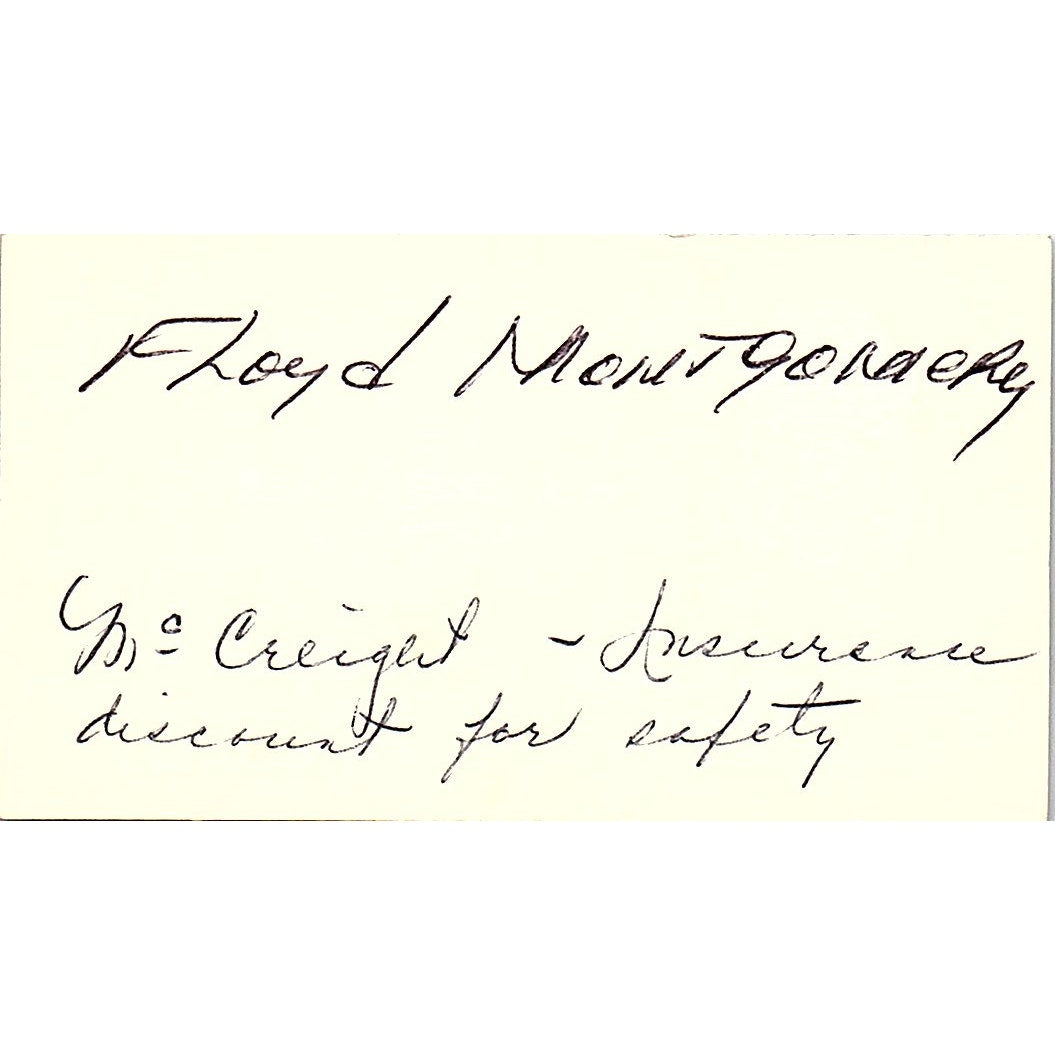 Floyd Montgomery
McCreight - Insurance
discount for safety